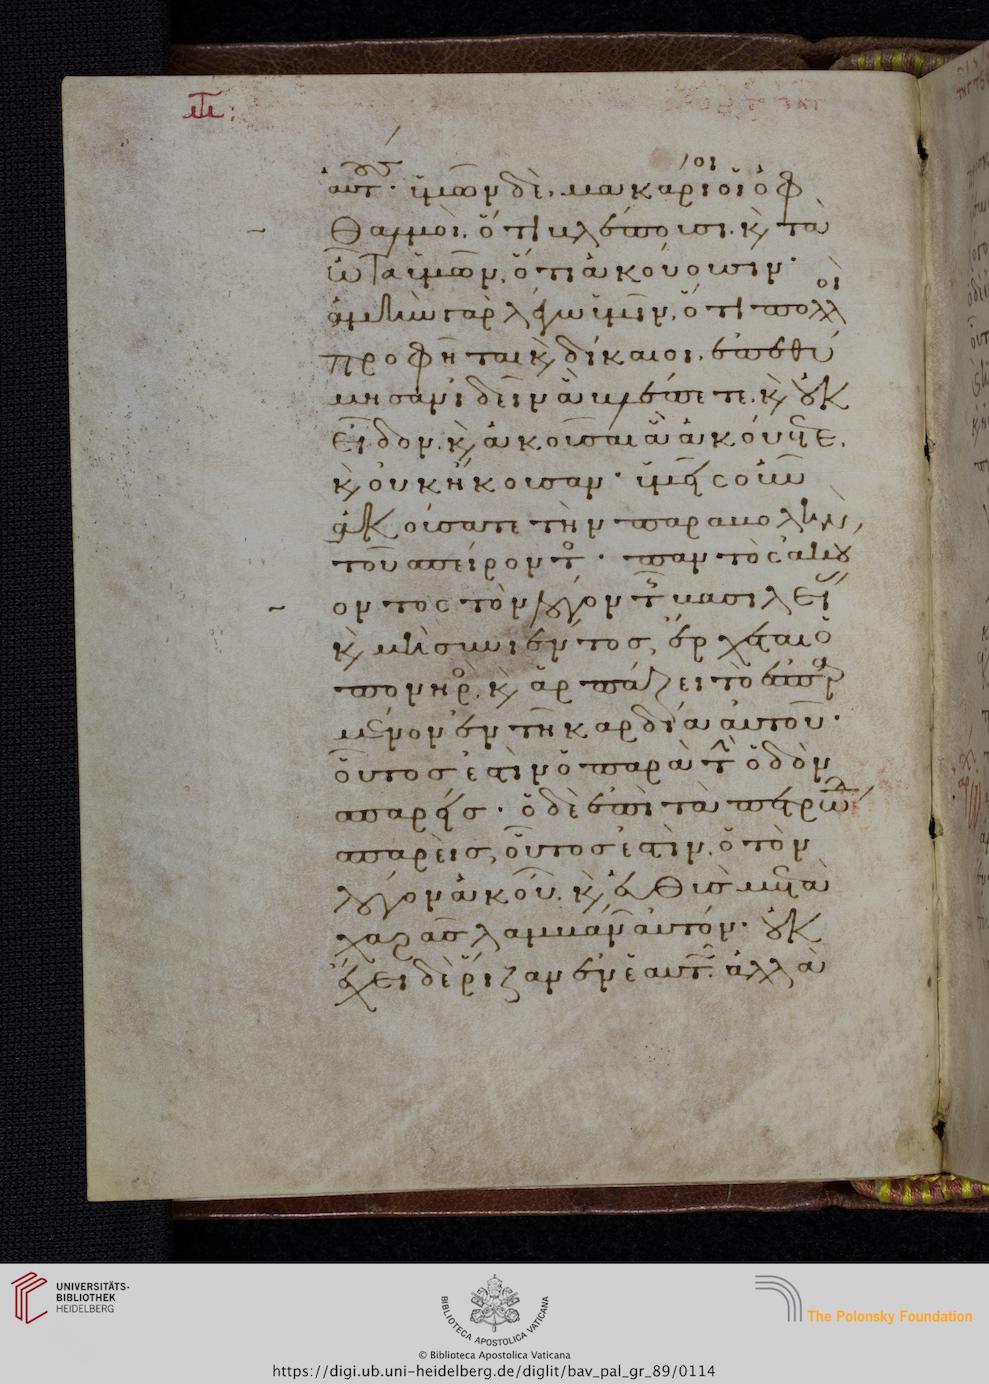 αὐτούς· ὑμῶν δὲ μακάριοι οἱ ὀφ
θαλμοὶ, ὅτι βλέπουσι. κ̀ τὰ
ὦτα ὑμῶν, ὅτι ἀκούουσιν·
ἀμὴν γὰρ λέγω ὑμῖν, ὅτι πολλοὶ
προφῆται κ̀ δίκαιοι, ἐπεθύ
μησαν ἰδεῖν ἃ βλέπετε. κ̀ οὐκ
εἶδον. κ̀ ἀκοῦσαι ἃ ἀκούετε,
κ̀ οὐκ ἤκουσαν· ὑμεῖς οὖν
ἀκούσατε τὴν παραβολὴν,
τοῦ σπείροντος· παντὸς ἀκού
οντος τὸν λόγον τῆς βασιλεί
κ̀ μὴ συνιέντος, ἔρχεται ὁ
πονηρός, κ̀ ἁρπάζει τὸ ἐσπαρ
μένον ἐν τῆ καρδία αὐτοῦ·
οὗτος ἐστὶν ὁ παρὰ τὴν ὁδὸν
σπαρείς· ὁ δὲ ἐπὶ τὰ πετρώδη
σπαρεὶς, οὗτος ἐστὶν, ὁ τὸν
λόγον ἀκούων. κ̀ εὐθὺς μετὰ
χαρᾶς λαμβάνων αὐτόν· οὐκ
ἔχει δὲ ῥίζαν ἐν ἑαυτῶ. ἀλλὰ
UNIVERSITÄTS-
BIBLIOTHEK
HEIDELBERG
BIBLIOTECA APOSTOLICA VATICANA
The Polonsky Foundation
© Biblioteca Apostolica Vaticana
https://digi.ub.uni-heidelberg.de/diglit/bav_pal_gr_89/0114